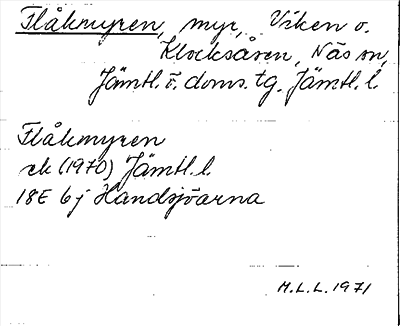 Flåkmyren, myr, Viken o.
Klocksåsen, Näs sn,
Jämtl. ö. doms. tg. Jämtl. l.
Flåkmyren
ek (1970) Jämtl. l.
18E 6j Handsjöarna
M.L.L. 1971